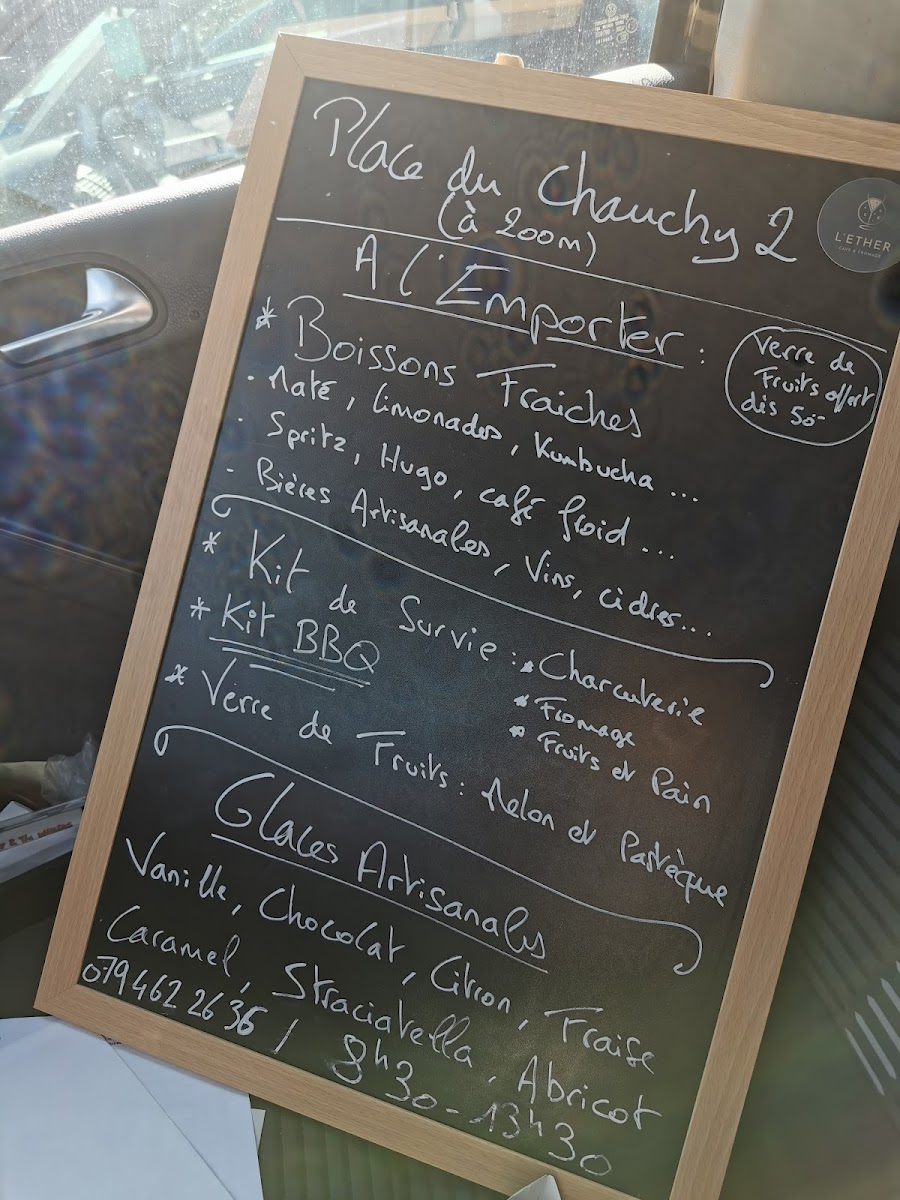 Place du Chauchy 2
(à 200m)
L'ETHER
CAFÉ & FROMAGE
A l'Emporter :
Verre de
Fruits offert
dès 50.-
* Boissons Fraiches
- Maté, limonades, Kumbucha ...
- Spritz, Hugo, café froid ...
- Bières Artisanales, Vins, cidres...
* Kit de Survie : * Charcuterie
* Fromage
* Fruits et Pain
* Kit BBQ
* Verre de Fruits : Melon et Pastèque
Glaces Artisanales
Vanille, Chocolat, Citron, Fraise
Caramel, Straciatella, Abricot
079 462 26 36 / 8h30 - 13h30